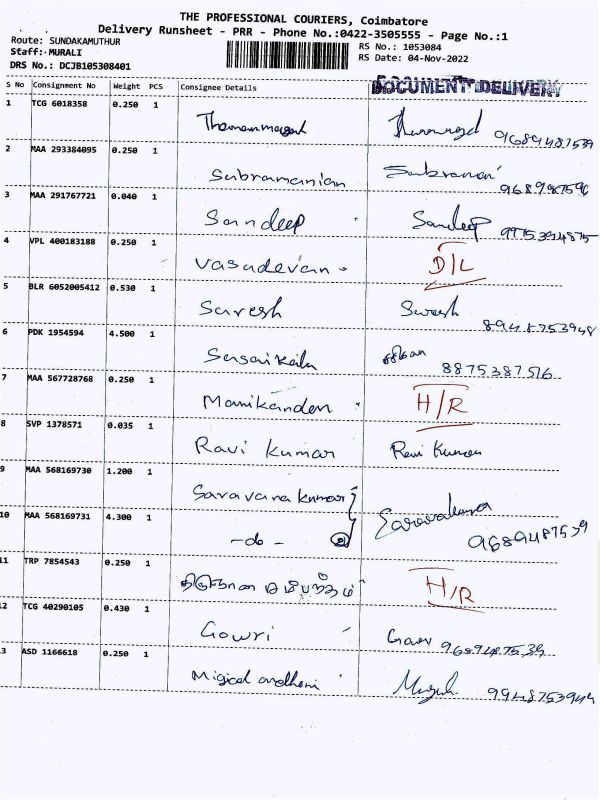 THE PROFESSIONAL COURIERS, Coimbatore
Delivery Runsheet - PRR - Phone No.:0422-3505555 - Page No.:1
Route: SUNDAKAMUTHUR
Staff: MURALI
DRS No.: DCJB105308401
RS No.: 1053084
RS Date: 04-Nov-2022
S No Consignment No Weight PCS Consignee Details DOCUMENT DELIVERY
1 TCG 6018358 0.250 1
9689487539
2 MAA 293384095 0.250 1
Subramanian
3 MAA 291767721 0.040 1
Sandeep Sandeep
4 VPL 400183188 0.250 1
Vasudevan D/L
5 BLR 6052005412 0.530 1
Suresh Suresh 8948753948
6 PDK 1954594 4.500 1
Sasaikala 8875387516
7 MAA 567728768 0.250 1
Manikanden H/R
8 SVP 1378571 0.035 1
Ravi Kumar Ravi Kumar
9 MAA 568169730 1.200 1
Saravana kumar
10 MAA 568169731 4.300 1
-do- 9689487539
11 TRP 7854543 0.250 1
H/R
12 TCG 40290105 0.430 1
Gowri
13 ASD 1166618 0.250 1